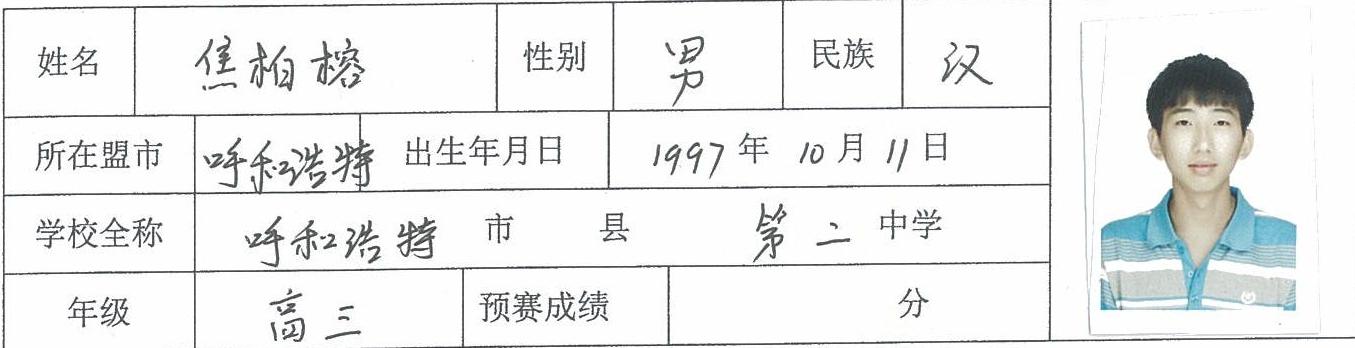 姓名 焦柏榕 性别 男 民族 汉
所在盟市 呼和浩特 出生年月日 1997年10月11日
学校全称 呼和浩特 市 县 第二中学
年级 高三 预赛成绩 分